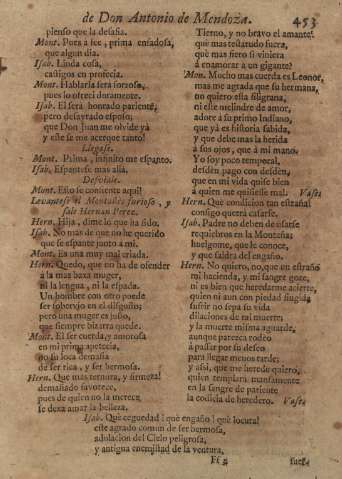 de Don Antonio de Mendoza. 453
pienso que la desafia.
Mont. Pues a fee, prima enfadosa,
que algun dia.
Isab. Linda cosa,
castigos en profecia.
Mont. Hablarla será forçoso,
pues lo ofreci duramente.
Isab. El será honrado pariente,
pero desayrado esposo;
que Don Juan me olvide yà
y este se me acerque tanto!
Llegase.
Mont. Palma, infinito me espanto.
Isab. Espantese mas allà.
Desviase.
Mont. Esto se consiente aqui!
Levantase el Montañès furioso, y
sale Hernan Perez.
Hern. Hija, dime lo que ha sido.
Isab. No mas de que no he querido
que se espante junto à mi.
Mont. Es una muy mal criada.
Hern. Quedo, que no ha de ofender
à la mas baxa muger,
ni la lengua, ni la espada.
Un hombre con otro puede
ser sobervio en el disgusto;
pero una muger es justo,
que siempre bizarra quede.
Mont. El ser cuerda, y amorosa
en mi prima apetecia,
no su loca demasia
de ser rica, y ser hermosa.
Hern. Que mas ternura, y firmeza!
demasiado favorece,
pues de quien no la merece
se dexa amar la belleza.
Tierno, y no bravo el amante!
què mas testarudo fuera,
què mas fiero si viniera
à enamorar à un gigante?
Mon. Mucho mas cuerda es Leonor,
mas me agrada que su hermana,
no quiero essa filigrana,
ni esse melindre de amor,
adore à su primo Indiano,
que yà es historia sabida,
y que debe mas la herida
à sus ojos, que à mi mano.
Yo soy poco temperal,
desden pago con desden,
que en mi vida quise bien
à quien me quisiesse mal. Vase
Hern. Què condicion tan estraña!
consigo querrà casarse.
Isab. Padre no deben de usarse
requiebros en la Montaña;
huelgome, que le conoce,
y que saldrà del engaño.
Hern. No quiero, no, que en estraño
mi hacienda, y mi sangre goze,
ni es bien que heredarme acierte,
quien ni aun con piedad fingida
sufrir no sepa su vida
dilaciones de mi muerte;
y la muerte misma aguarde,
aunque parezca rodeo
à passar por su deseo
para llegar menos tarde;
y assi, que me herede quiero,
quien templarà mansamente
en la sangre de pariente
la codicia de heredero. Vase
Isab. Què ceguedad! què engaño! què locura!
este agrado comun de ser hermosa,
adulacion del Cielo peligrosa,
y antigua enemistad de la ventura,
Ff 3